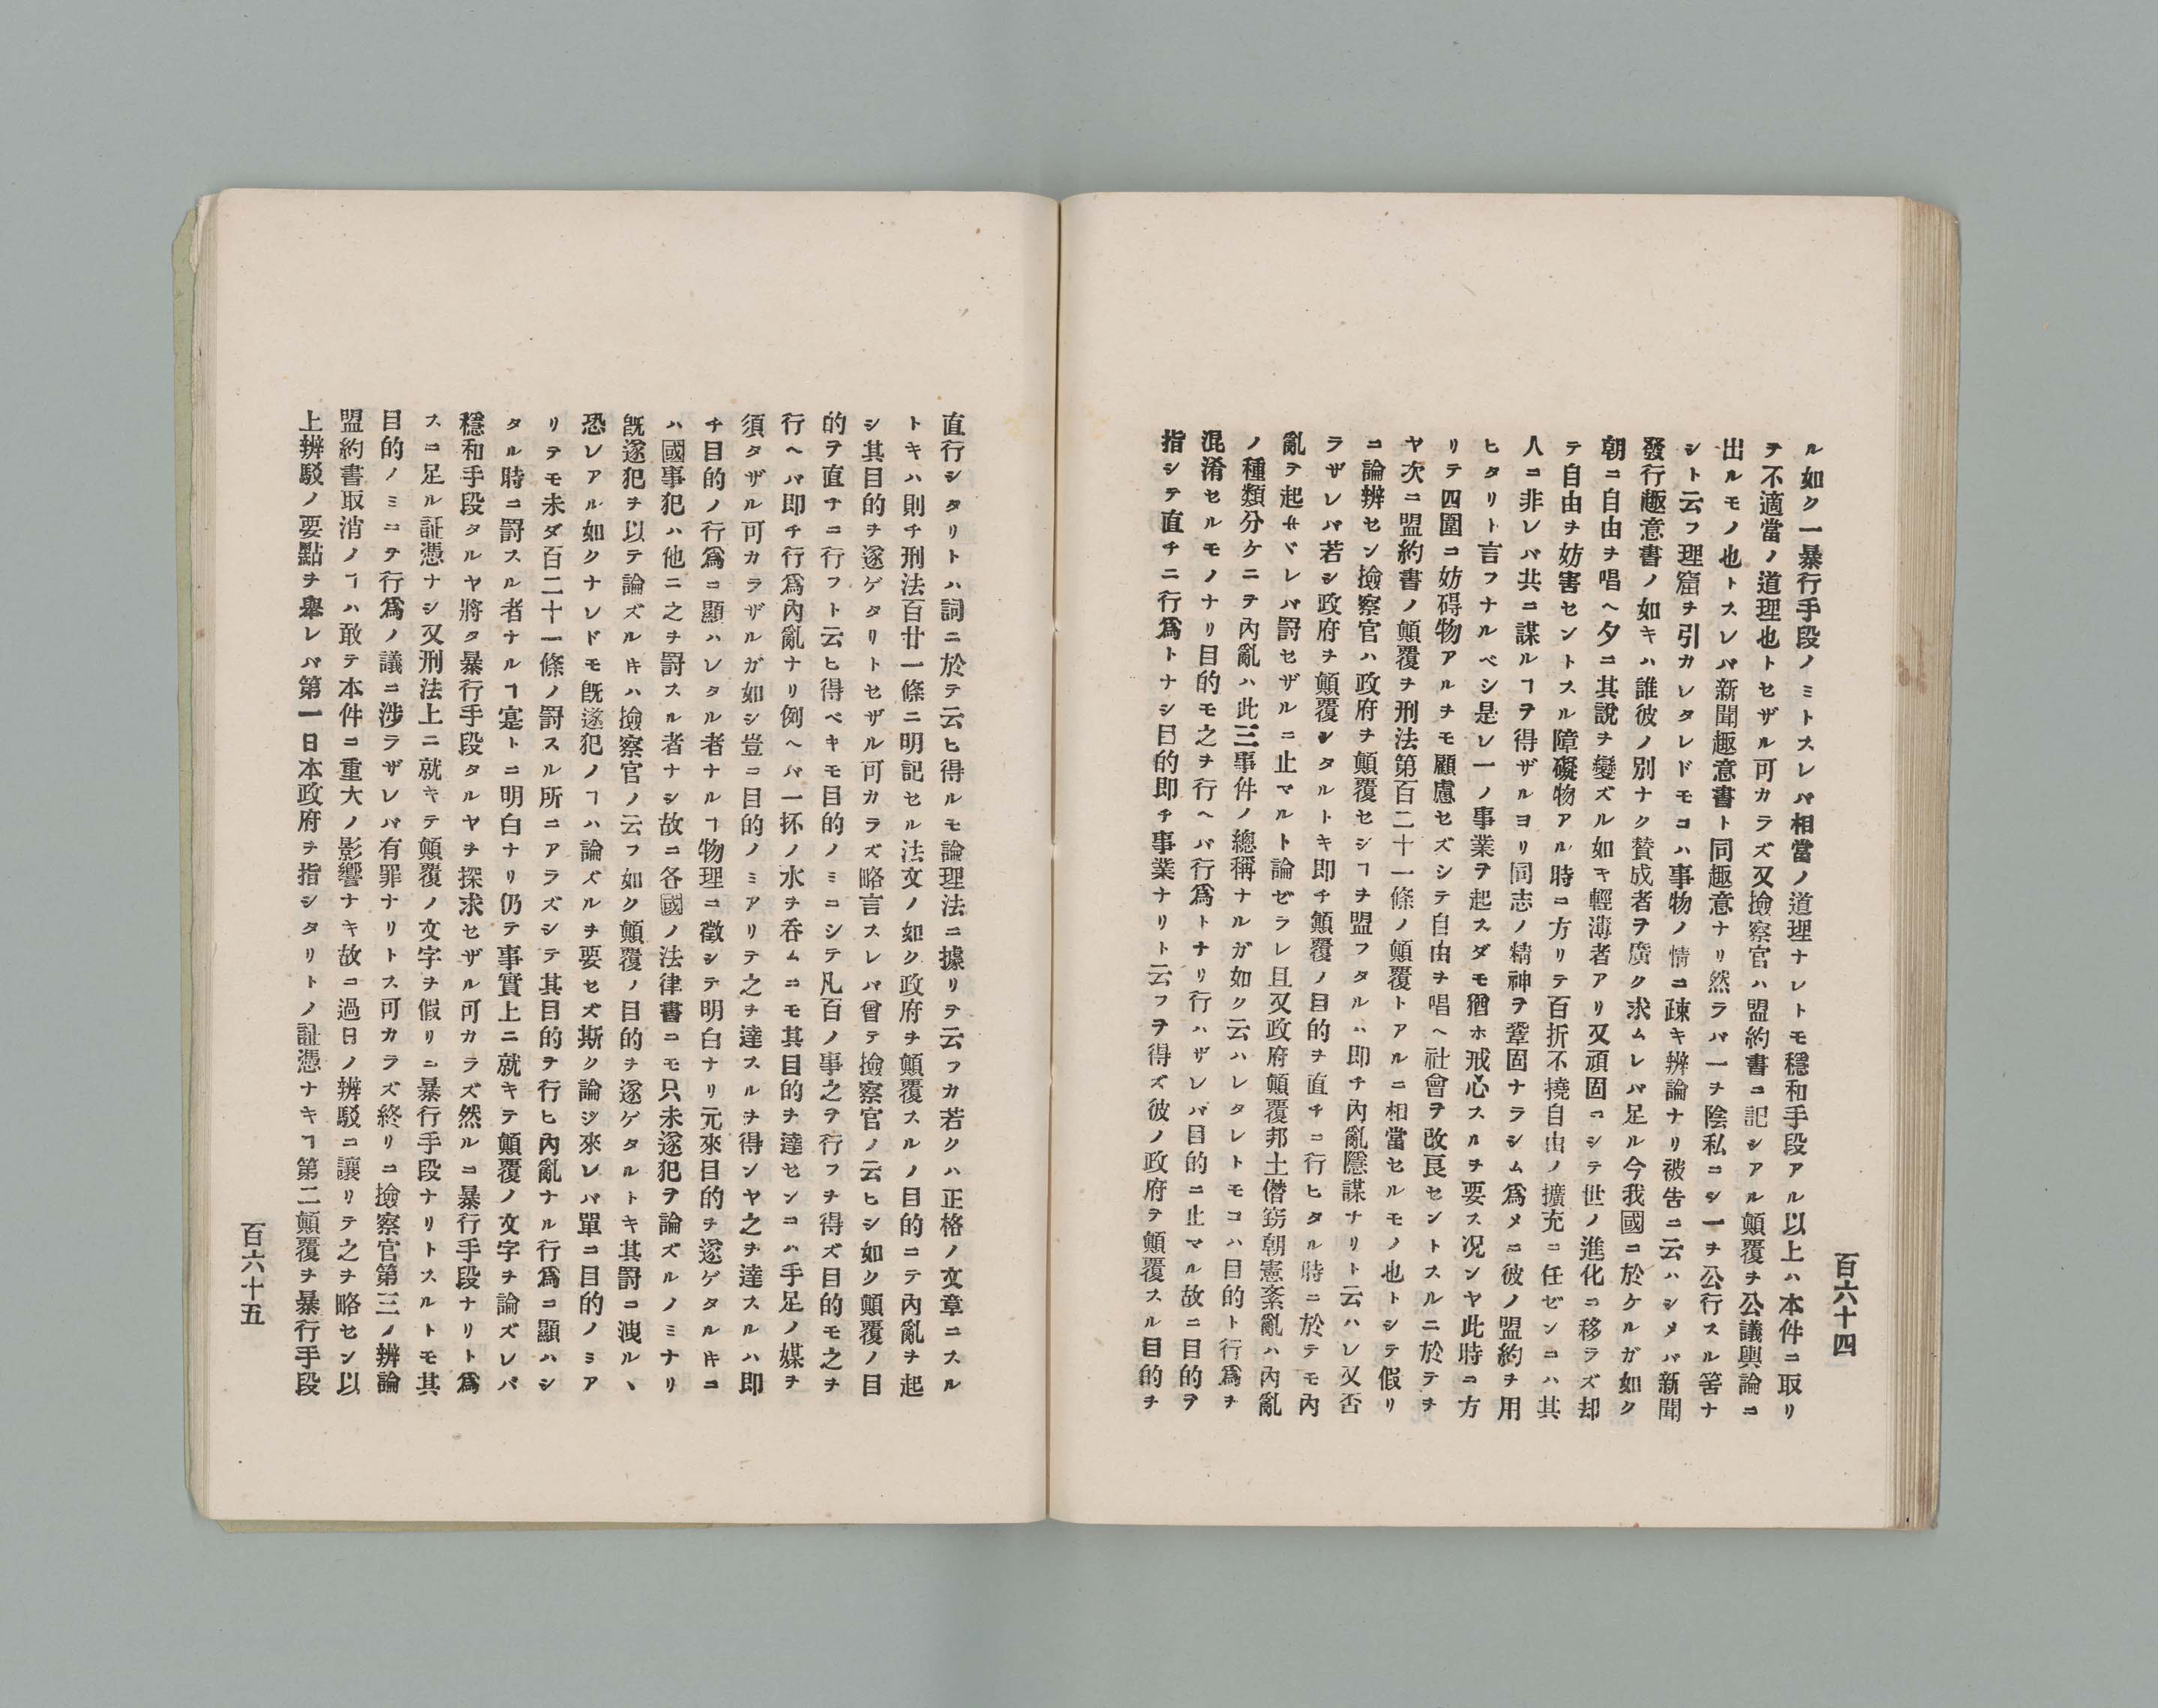 百六十四
ル如ク一暴行手段ノミトスレバ相當ノ道理ナレトモ穩和手段アル以上ハ本件ニ取リ
テ不適當ノ道理也トセザル可カラズ又撿察官ハ盟約書ニ記シアル顛覆ヲ公議輿論ニ
出ルモノ也トスレバ新聞趣意書ト同趣意ナリ然ラバ一ヲ陰私ニシ一ヲ公行スル筈ナ
シト云フ理窟ヲ引カレタレドモコハ事物ノ情ニ疎キ辨論ナリ被告ニ云ハシメバ新聞
發行趣意書ノ如キハ誰彼ノ別ナク賛成者ヲ廣ク求ムレバ足ル今我國ニ於ケルガ如ク
朝ニ自由ヲ唱ヘ夕ニ其説ヲ變ズル如キ輕薄者アリ又頑固ニシテ世ノ進化ニ移ラズ却
テ自由ヲ妨害セントスル障礙物アル時ニ方リテ百折不撓自由ノ擴充ニ任ゼンコハ其
人ニ非レバ共ニ謀ルヿヲ得ザルヨリ同志ノ精神ヲ鞏固ナラシム爲メニ彼ノ盟約ヲ用
ヒタリト言フナルベシ是レ一ノ事業ヲ起スダモ猶ホ戒心スルヲ要ス况ンヤ此時ニ方
リテ四圍ニ妨碍物アルヲモ顧慮セズシテ自由ヲ唱ヘ社會ヲ改良セントスルニ於テヲ
ヤ次ニ盟約書ノ顛覆ヲ刑法第百二十一條ノ顛覆トアルニ相當セルモノ也トシテ假リ
ニ論辨セン撿察官ハ政府ヲ顛覆セシヿヲ盟フタルハ即チ內亂隱謀ナリト云ハレ又否
ラザレバ若シ政府ヲ顛覆シタルトキ即チ顛覆ノ目的ヲ直チニ行ヒタル時ニ於テモ內
亂ヲ起サヾレバ罰セザルニ止マルト論ゼラレ且又政府顛覆邦土僭竊朝憲紊亂ハ內亂
ノ種類分ケニテ內亂ハ此三事件ノ總稱ナルガ如ク云ハレタレトモコハ目的ト行爲ヲ
混淆セルモノナリ目的モ之ヲ行ヘバ行爲トナリ行ハザレバ目的ニ止マル故ニ目的ヲ
指シテ直チニ行爲トナシ目的即チ事業ナリト云フヲ得ズ彼ノ政府ヲ顛覆スル目的ヲ
直行シタリトハ詞ニ於テ云ヒ得ルモ論理法ニ據リテ云フカ若クハ正格ノ文章ニスル
トキハ則チ刑法百廿一條ニ明記セル法文ノ如ク政府ヲ顛覆スルノ目的ニテ內亂ヲ起
シ其目的ヲ遂ゲタリトセザル可カラズ略言スレバ曾テ撿察官ノ云ヒシ如ク顛覆ノ目
的ヲ直チニ行フト云ヒ得ベキモ目的ノミニシテ凡百ノ事之ヲ行フヲ得ズ目的モ之ヲ
行ヘバ即チ行爲內亂ナリ例ヘバ一抔ノ水ヲ呑ムニモ其目的ヲ達センコハ手足ノ媒ヲ
須タザル可カラザルガ如シ豈ニ目的ノミアリテ之ヲ達スルヲ得ンヤ之ヲ達スルハ即
チ目的ノ行爲ニ顯ハレタル者ナルヿ物理ニ徵シテ明白ナリ元來目的ヲ遂ゲタルキニ
ハ國事犯ハ他ニ之ヲ罰スル者ナシ故ニ各國ノ法律書ニモ只未遂犯ヲ論ズルノミナリ
旣遂犯ヲ以テ論ズルキハ撿察官ノ云フ如ク顛覆ノ目的ヲ遂ゲタルトキ其罰ニ洩ルヽ
恐レアル如クナレドモ旣遂犯ノヿハ論ズルヲ要セズ斯ク論ジ來レバ單ニ目的ノミア
リテモ未ダ百二十一條ノ罰スル所ニアラズシテ其目的ヲ行ヒ內亂ナル行爲ニ顯ハシ
タル時ニ罰スル者ナルヿ寔トニ明白ナリ仍テ事實上ニ就キテ顛覆ノ文字ヲ論ズレバ
穩和手段タルヤ將タ暴行手段タルヤヲ探求セザル可カラズ然ルニ暴行手段ナリト爲
スニ足ル証憑ナシ又刑法上ニ就キテ顛覆ノ文字ヲ假リニ暴行手段ナリトスルトモ其
目的ノミニテ行爲ノ議ニ涉ラザレバ有罪ナリトス可カラズ終リニ撿察官第三ノ辨論
盟約書取消ノヿハ敢テ本件ニ重大ノ影響ナキ故ニ過日ノ辨駁ニ讓リテ之ヲ略セン以
上辨駁ノ要點ヲ擧レバ第一日本政府ヲ指シタリトノ証憑ナキヿ第二顛覆ヲ暴行手段
百六十五